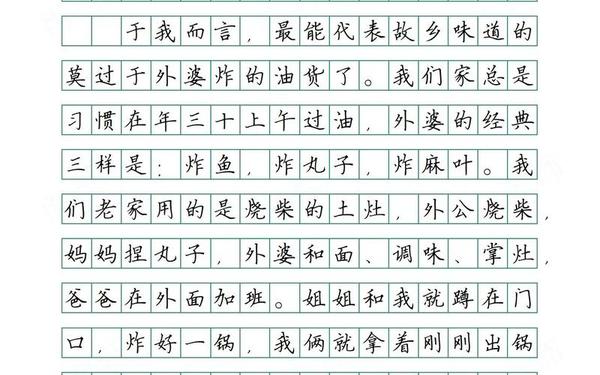 于我而言，最能代表故乡味道的
莫过于外婆炸的油货了。我们家总是
习惯在年三十上午过油，外婆的经典
三样是：炸鱼，炸丸子，炸麻叶。我
们老家用的是烧柴的土灶，外公烧柴，
妈妈捏丸子，外婆和面、调味、掌灶，
爸爸在外面加班。姐姐和我就蹲在门
口，炸好一锅，我俩就拿着刚刚出锅